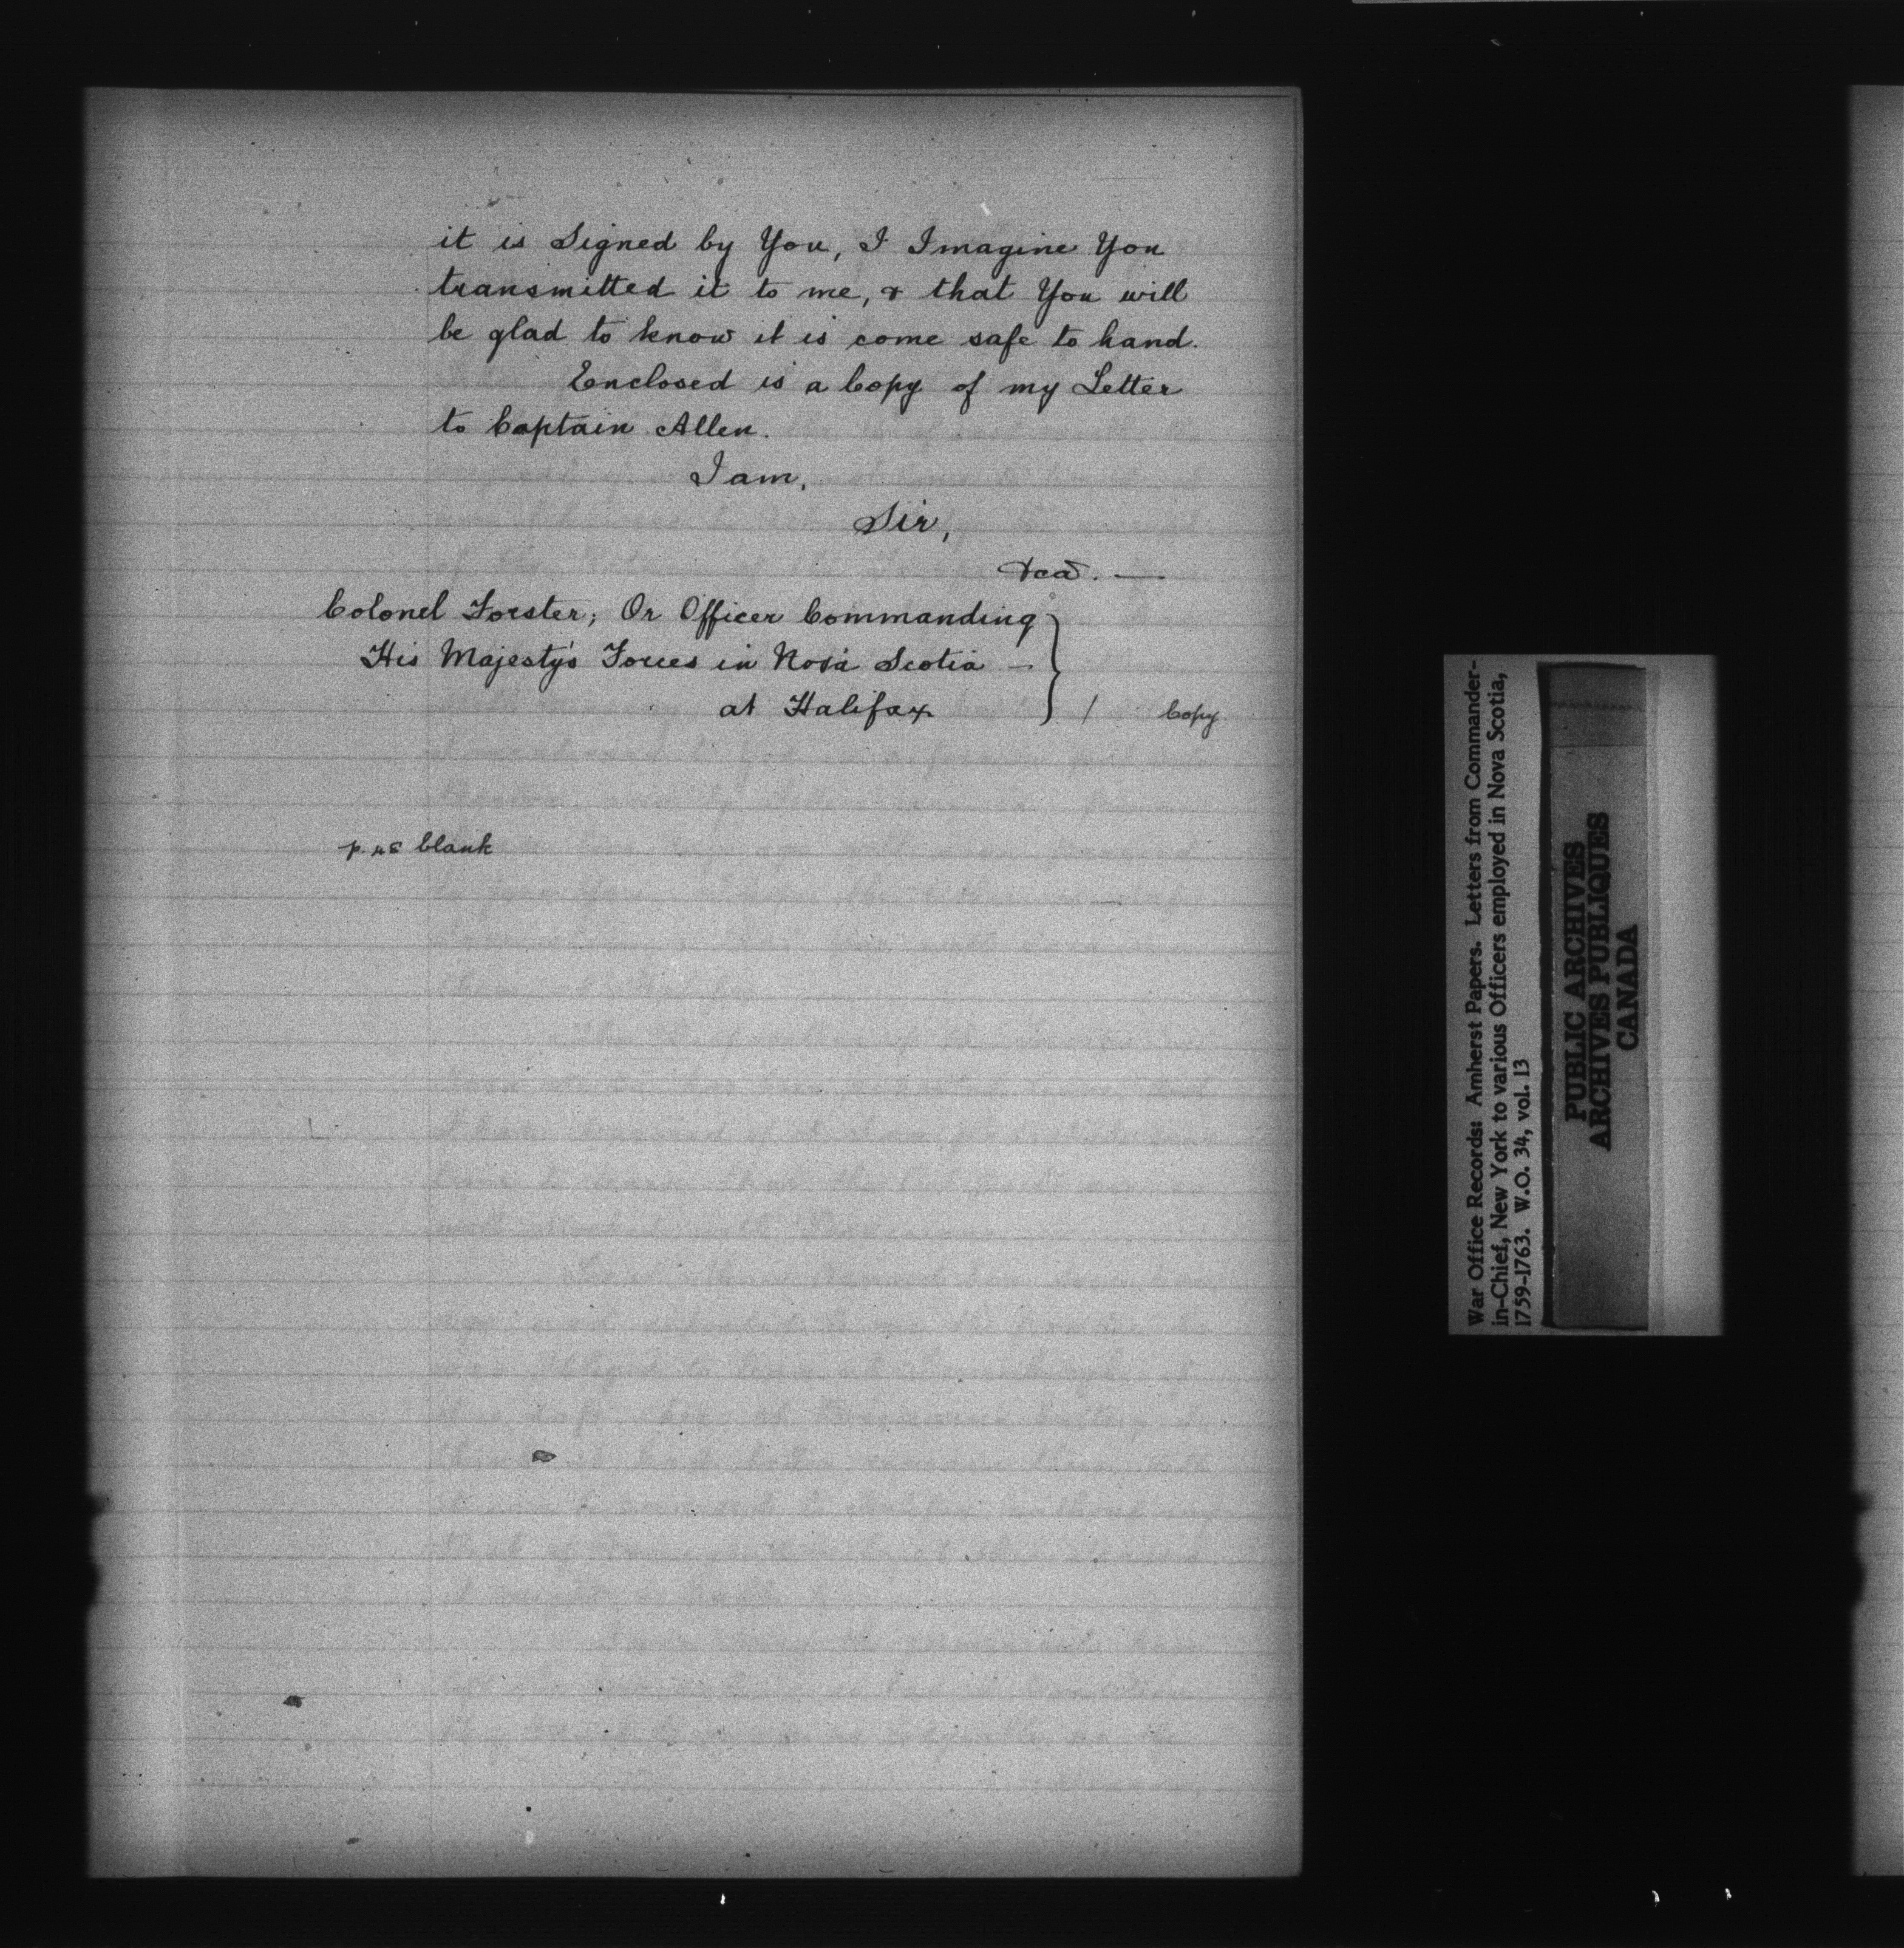 it is Signed by You, I Imagine You
transmitted it to me, & that You will
be glad to know it is come safe to hand.
Enclosed is a Copy of my Letter
to Captain Allen.
I am,
Sir,
&ca. —
Colonel Forster; Or Officer Commanding
His Majesty's Forces in Nova Scotia —
at Halifax
/ Copy
p. 48 blank
War Office Records: Amherst Papers. Letters from Commander-
in-Chief, New York to various Officers employed in Nova Scotia,
1759-1763. W.O. 34, vol. 13
PUBLIC ARCHIVES
ARCHIVES PUBLIQUES
CANADA